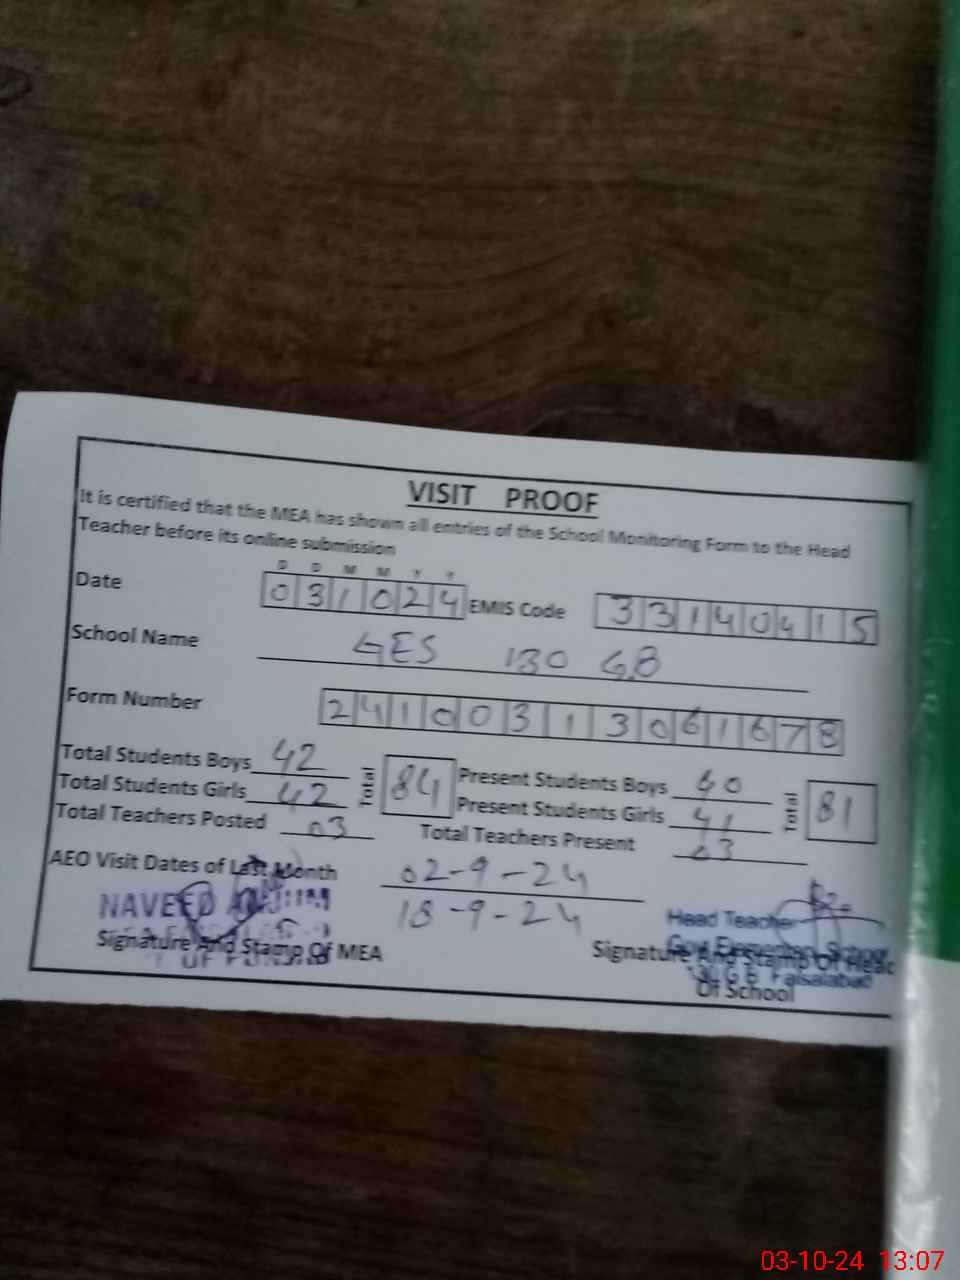 VISIT PROOF
It is certified that the MEA has shown all entries of the School Monitoring Form to the Head
Teacher before its online submission
D D M M Y Y
Date 031024 EMIS Code 33140415
School Name GES 130 GB
Form Number 24100313061678
Total Students Boys 42 Total 84 Present Students Boys 40 Total 81
Total Students Girls 42 Present Students Girls 41
Total Teachers Posted 03 Total Teachers Present 03
AEO Visit Dates of Last Month 02-9-24
18-9-24
NAVEED
Signature And Stamp Of MEA
OF
Head Teacher
Govt Elementary School
Signature And Stamp Of Head
G B Faisalabad
Of School
03-10-24 13:07